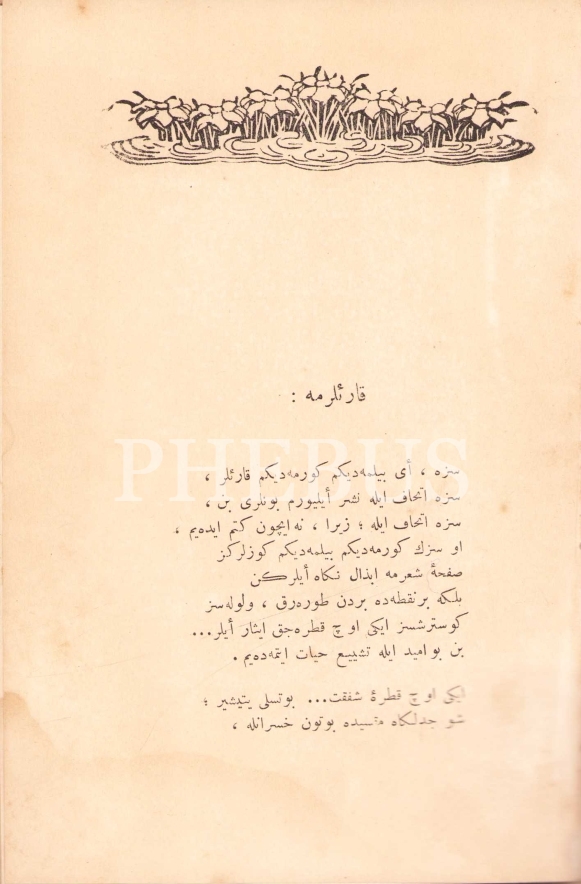 قارئلرمه :
PHEBUS
سزه ، أی بیلمه‌دیكم كورمه‌دیكم قارئلر ،
سزه اتحاف ایله نشر أیلیورم بونلری بن ،
سزه اتحاف ایله ؛ زیرا ، نه‌ایچون كتم ایده‌یم ،
او سزك كورمه‌دیكم بیلمه‌دیكم كوزلركز
صفحهٔ شعرمه ابذال نكاه أیلركن
بلكه برنقطه‌ده بردن طوره‌رق ، ولوله‌سز
كوسترشسز ایكی اوچ قطره‌جق ایثار أیلر...
بن بوامید ایله تشییع حیات ایتمه‌ده‌یم .
ایكی اوچ قطرهٔ شفقت... بوتسلی یتیشیر ؛
شو جدلكاه مآسیده بوتون خسرانله ،